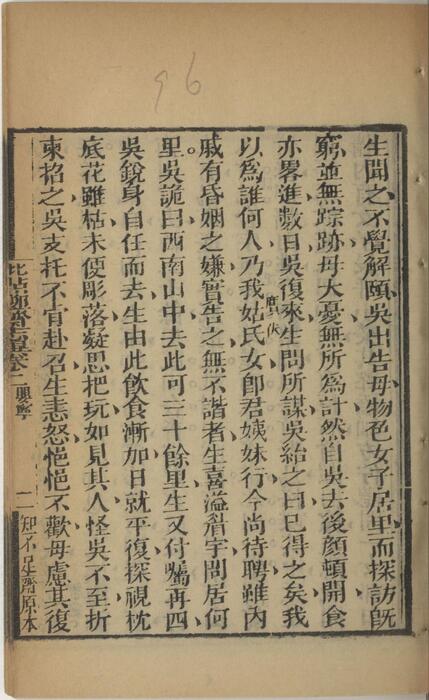 96
生聞之不覺解頤吳出告母物色女子居里而探訪旣
窮並無踪跡母大憂無所爲計然自吳去後顔頓開食
亦畧進數日吳復來生問所謀吳紿之曰已得之矣我
以爲誰何人乃我姑氏女卽君姨妹行今尚待聘雖內
戚有昏姻之嫌實告之無不諧者生喜溢眉宇問居何
里吳詭曰西南山中去此可三十餘里生又付囑再四
吳銳身自任而去生由此飲食漸加日就平復探視枕
底花雖枯未便彫落凝思把玩如見其人怪吳不至折
柬招之吳支托不肯赴召生恚怒悒悒不歡母慮其復
二 知不足齋原本